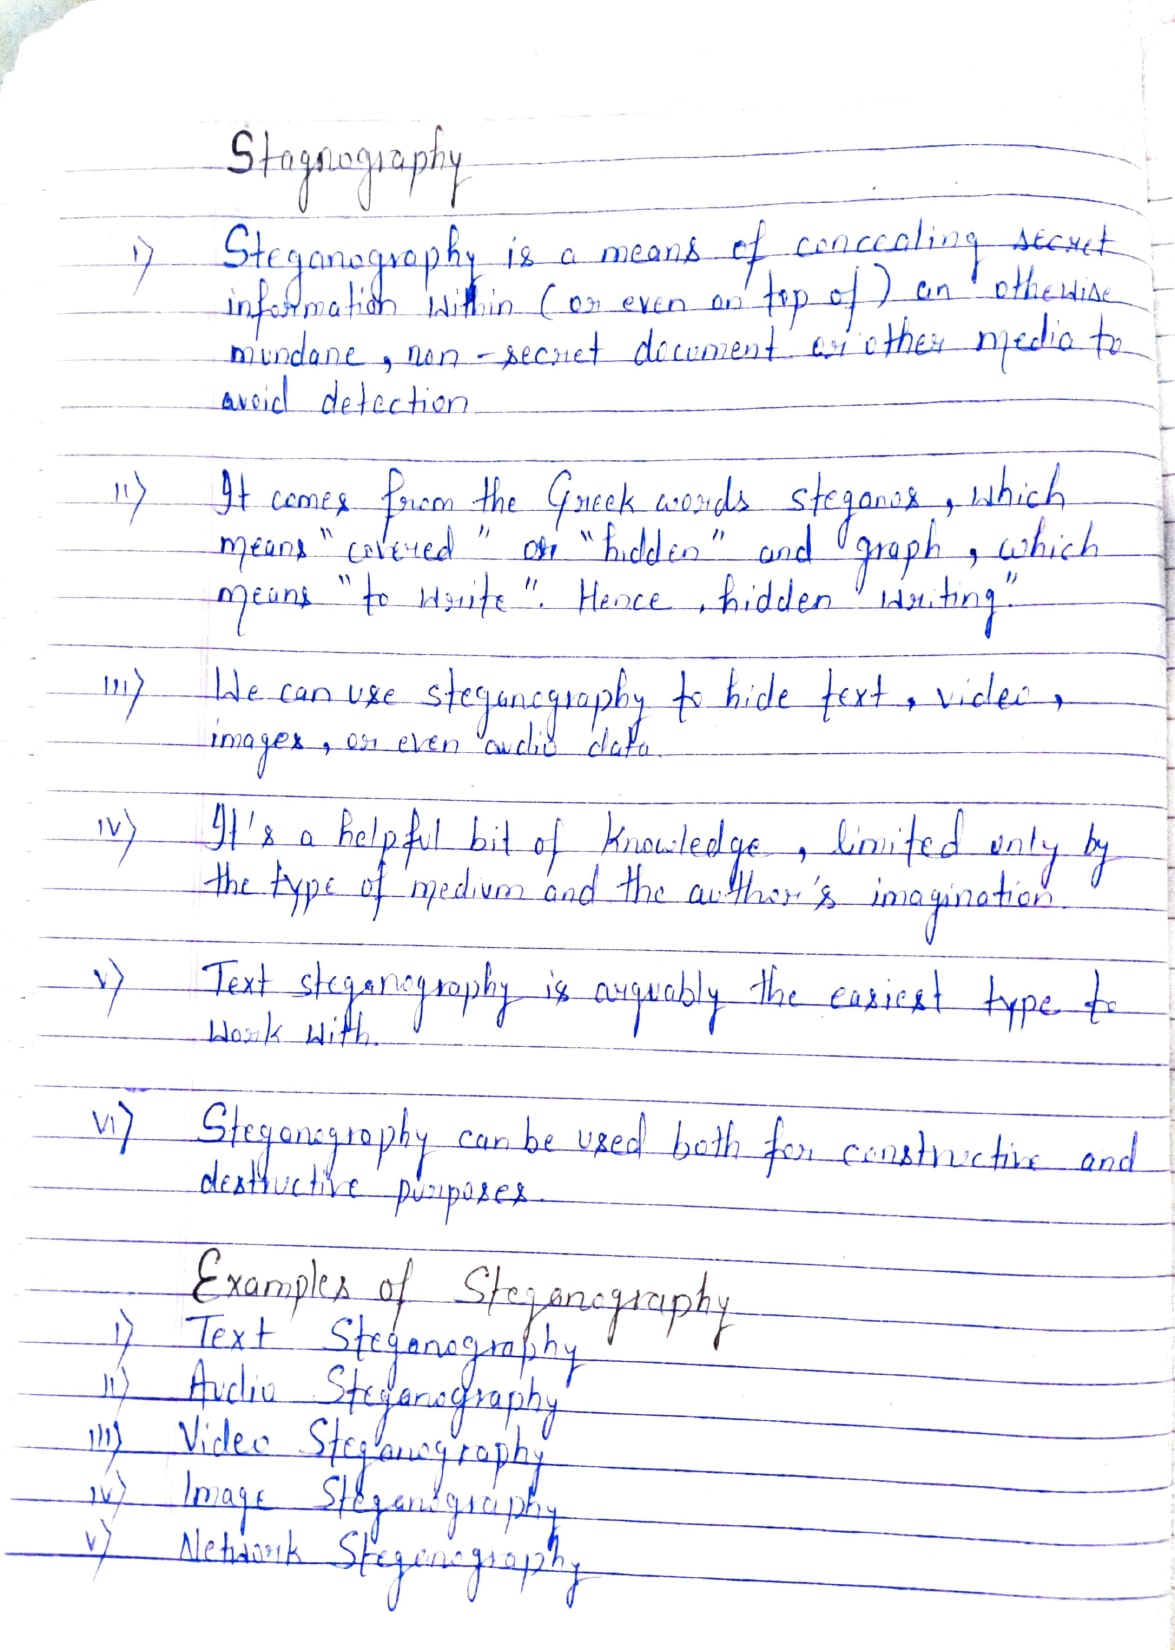 Stagnography
i) Steganography is a means of concealing secret
information within (or even on top of) an othewise
mundane, non-secret document or other media to
avoid detection
ii) It comes from the Greek words steganos, which
means "covered" or "hidden" and graph, which
means "to write". Hence, hidden writing"
iii) We can use steganography to hide text, video,
images, or even audio data.
iv) It's a helpful bit of knowledge, limited only by
the type of medium and the author's imagination.
v) Text steganography is arguably the easiest type to
work with.
vi) Steganography can be used both for constructive and
destructive purposes.
Examples of Steganography
i) Text Steganography
ii) Audio Steganography
iii) Video Steganography
iv) Image Steganography
v) Network Steganography